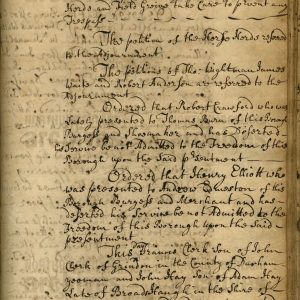 Herds and Feild Greive take Care to prevent any
Trespass
The petition of the Horse Herds referred
to the adjournment
The petitions of Tho: Lightman James
Waite and Robert Anderson are referred to the
Adjournment
Ordered that Robert Crawford who was
lately presented to Thomas Burn of this Borough
Burgess and Shoemaker and has deserted
his Service be not Admitted to the Freedom of this
Borough upon the Said presentment
Ordered that Henry Elliott who
was presented to Andrew of this
Borough Burgess and Merchant and has
deserted his Service be not Admitted to the
Freedom of this Borough upon the Said
presentment
This Francis Clerk Son of John
Clerk of Grindon in the County of Durham
yeoman and John Hay Son of Adam Hay
Late of in the Shire of